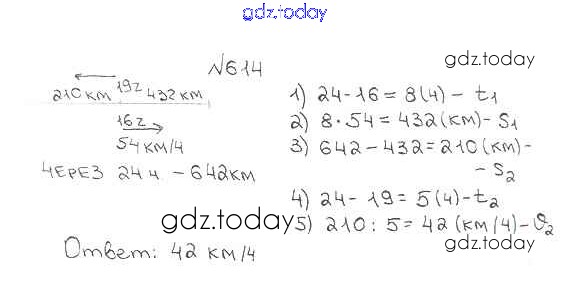 gdz.today
№614
gdz.today
210 км 19г 432 км
16г
54 км/ч
через 24 ч. – 642 км
1) 24-16=8(ч) – t1
2) 8·54=432(км)–S1
3) 642–432=210(км)–
–S2
4) 24-19=5(ч)–t2
gdz.today
5) 210:5=42(км/ч)–υ2
gdz.today
Ответ: 42 км/ч